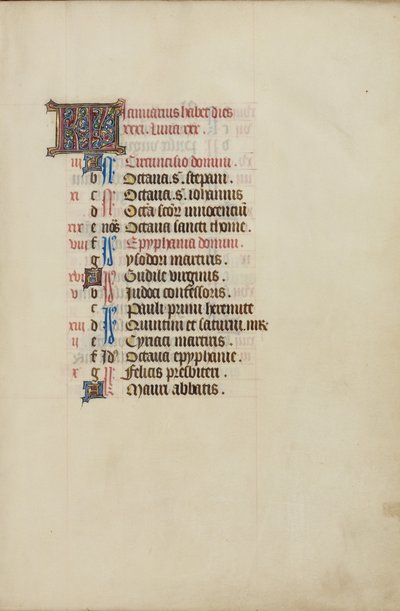 KL Januarius habet dies
xxxi. luna xxx.
iii A N Circumcisio domini.
b Octaua. s. stepani.
xi c N Octaua. s. iohannis
d N Octa scõr innocenciũ
xix e nōs Octaua sancti thome.
viii f Epyphania domini.
g ysodori martiris.
xvi A Gudile virginis.
v b Judoci confessoris.
c Pauli primi heremite
xiii d Quintini et saturni. mr̃
ii e Cyriaci martiris.
f Octaua epyphanie.
x g Felicis presbiteri.
A Mauri abbatis.